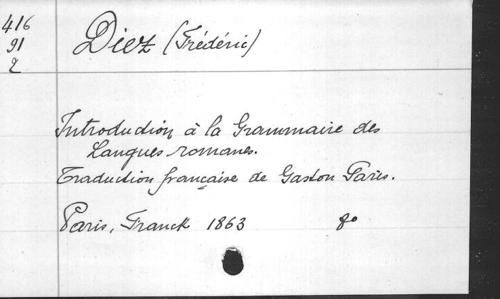 416
91
2
Diez (Frédéric)
Introduction à la Grammaire des
Langues romanes.
Traduction française de Gaston Paris.
Paris, Franck 1863 8o